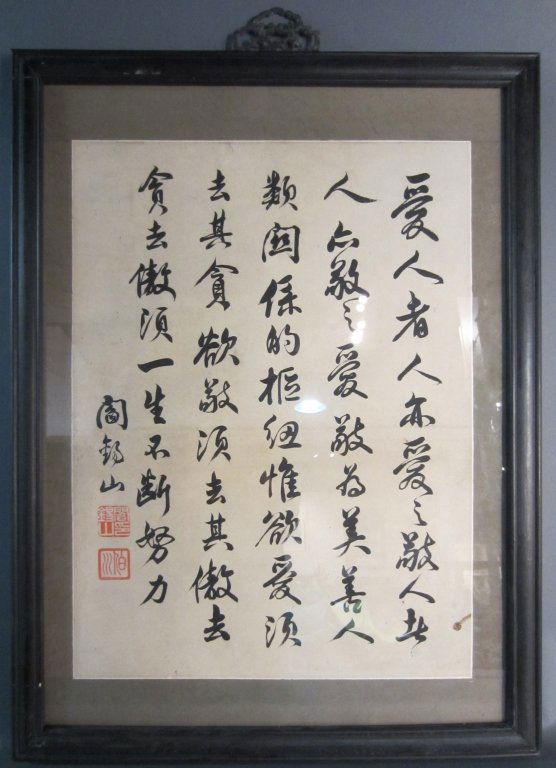 愛人者人亦愛之敬人者
人亦敬之愛敬為美善人
類関係的樞紐惟欲愛須
去其貪欲敬須去其傲去
貪去傲須一生不断努力
閻錫山
閻錫山印
伯川